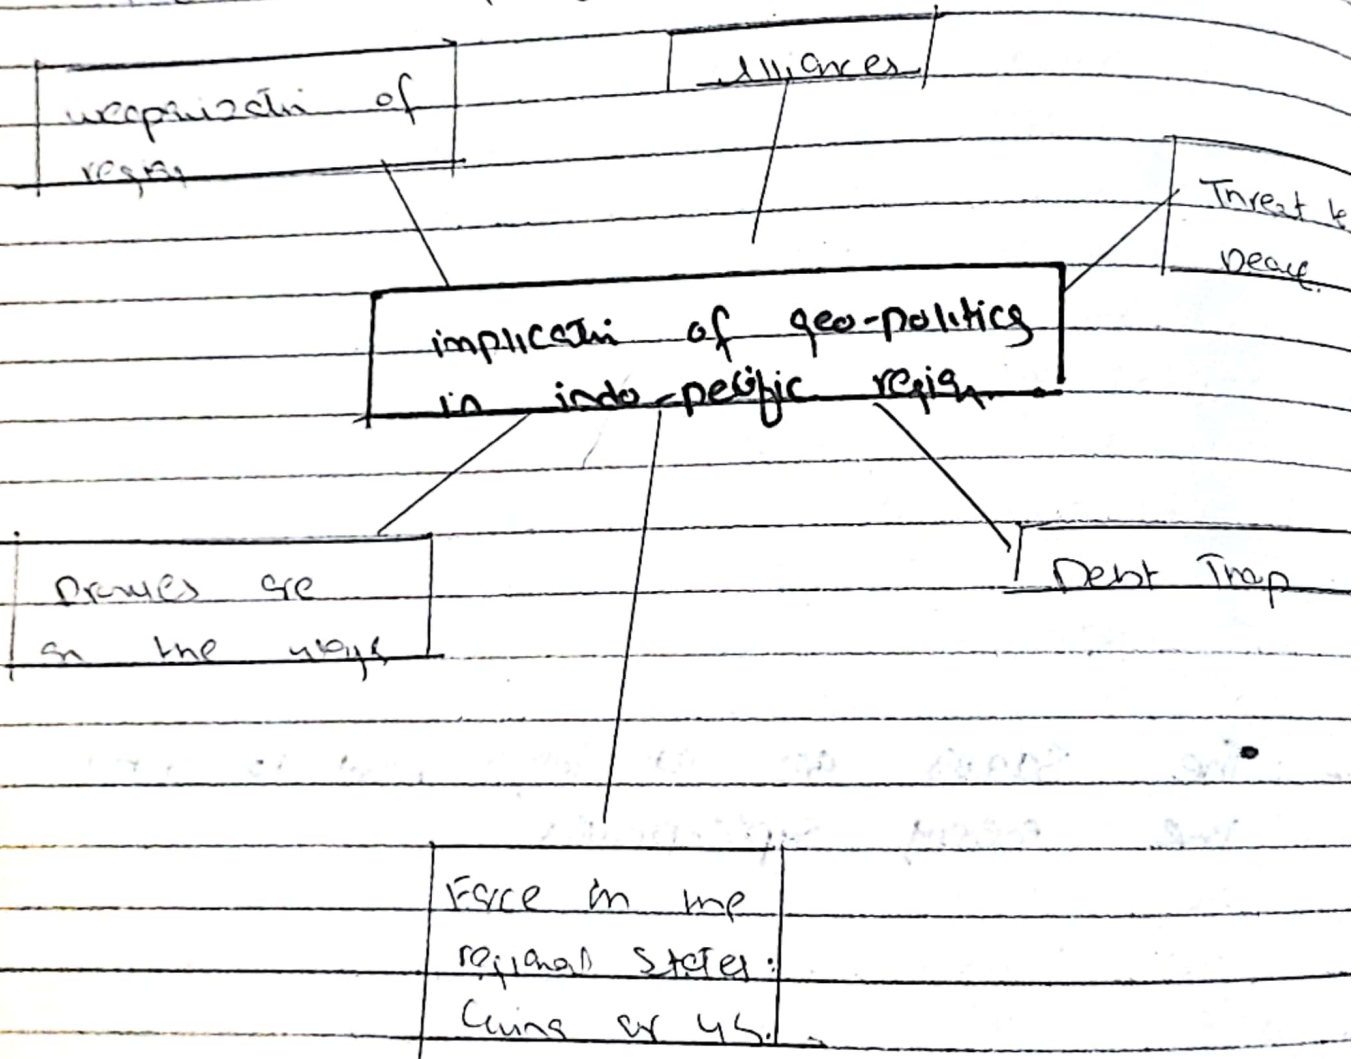 Alliances
weaponizatin of
region
Threat to
Peace.
implicatin of geo-politics
in indo-pecific region
are
on the ways
Debt Trap
Force on the
regional states:
China or US.